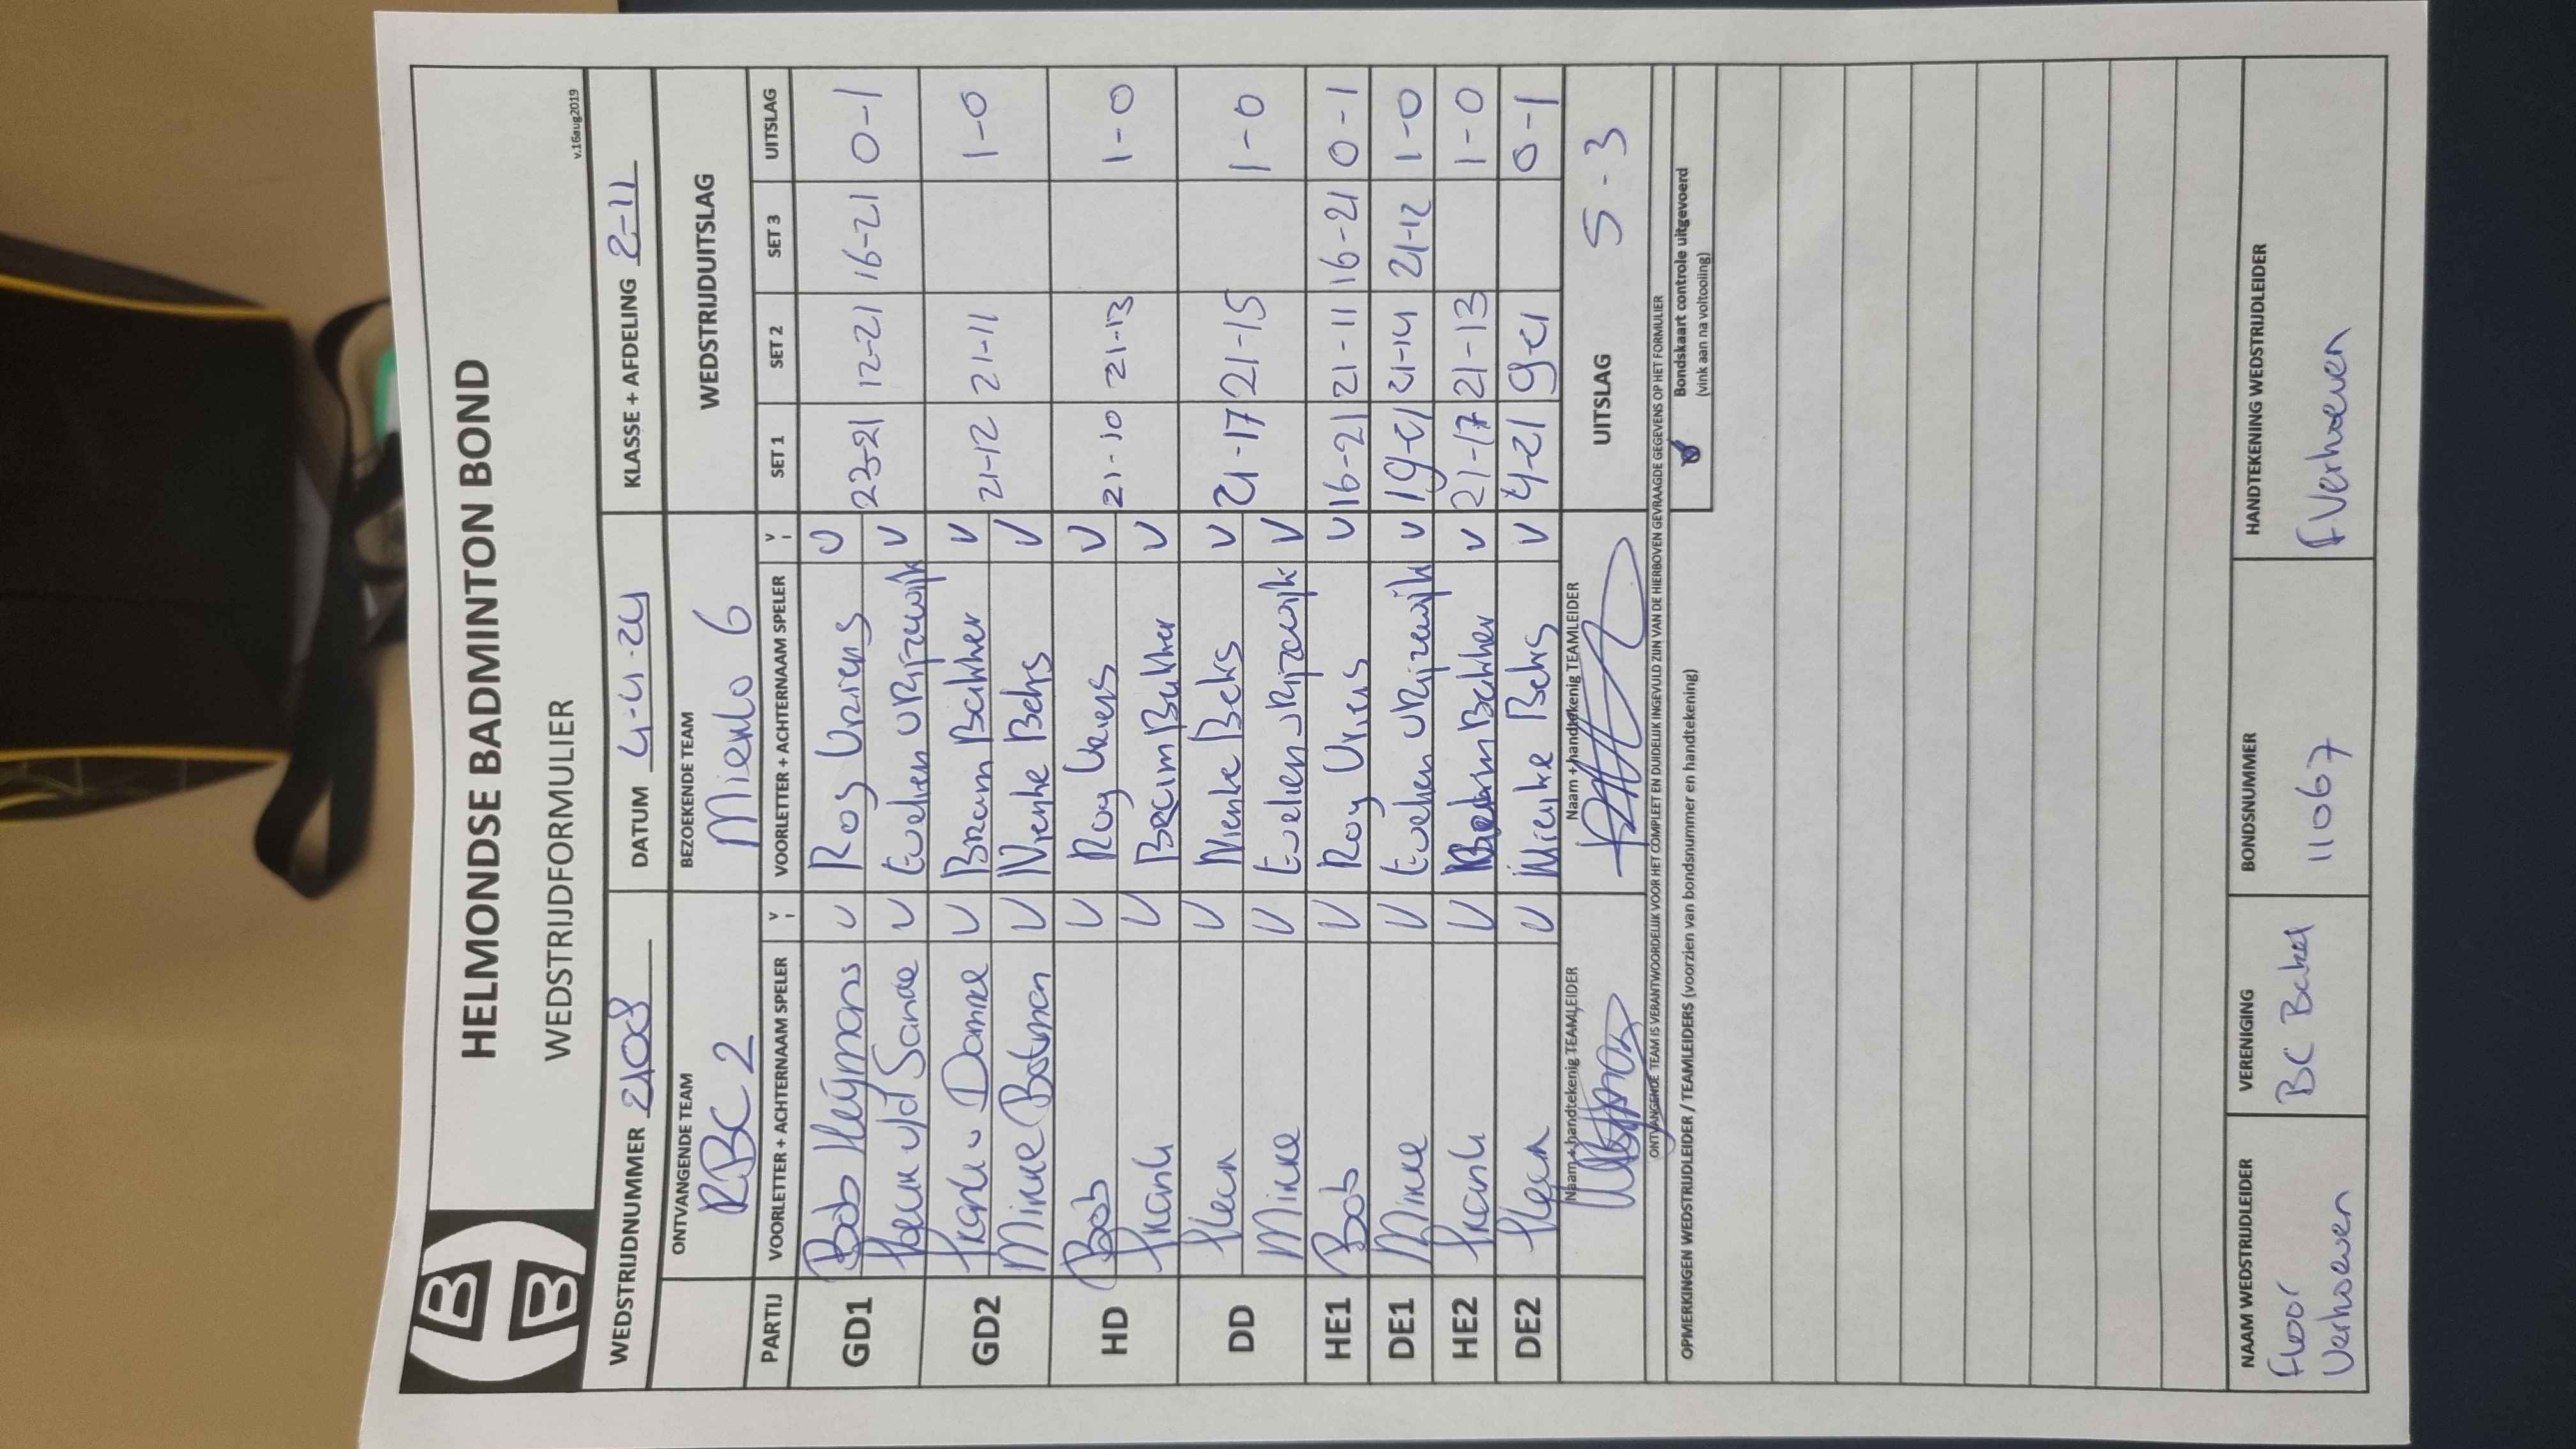 HELMONDSE BADMINTON BOND
WEDSTRIJDFORMULIER
v.16aug2019
WEDSTRIJDNUMMER 2108 DATUM 4-4-24 KLASSE + AFDELING 2-11
ONTVANGENDE TEAM BEZOEKENDE TEAM WEDSTRIJDUITSLAG
RBC 2 Mierlo 6
PARTIJ VOORLETTER + ACHTERNAAM SPELER V VOORLETTER + ACHTERNAAM SPELER V SET 1 SET 2 SET 3 UITSLAG
GD1 Bob Heijmans V Roy Vriens V 23-21 12-21 16-21 0-1
v/d Sande V Evelien V
GD2 Frank v Damme V Bram Bakker V 21-12 21-11 1-0
Minke Botman V Nienke Beks V
HD Bob V Roy Vriens V 21-10 21-13 1-0
Frank V Bram Bakker V
DD V Nienke Beks V 21-17 21-15 1-0
Minke V Evelien V
HE1 Bob V Roy Vriens V 16-21 21-11 16-21 0-1
DE1 Minke V Evelien V 19-21 21-14 21-12 1-0
HE2 Frank V Bram Bakker V 21-17 21-13 1-0
DE2 V Nienke Beks V 4-21 9-21 0-1
Naam + handtekenig TEAMLEIDER Naam + handtekenig TEAMLEIDER UITSLAG 5-3
ONTVANGENDE TEAM IS VERANTWOORDELIJK VOOR HET COMPLEET EN DUIDELIJK INGEVULD ZIJN VAN DE HIERBOVEN GEVRAAGDE GEGEVENS OP HET FORMULIER
OPMERKINGEN WEDSTRIJDLEIDER / TEAMLEIDERS (voorzien van bondsnummer en handtekening)
Bondskaart controle uitgevoerd
(vink aan na voltooiing)
NAAM WEDSTRIJDLEIDER VERENIGING BONDSNUMMER HANDTEKENING WEDSTRIJDLEIDER
Floor
Verhoeven BC Bakel 11067 F Verhoeven